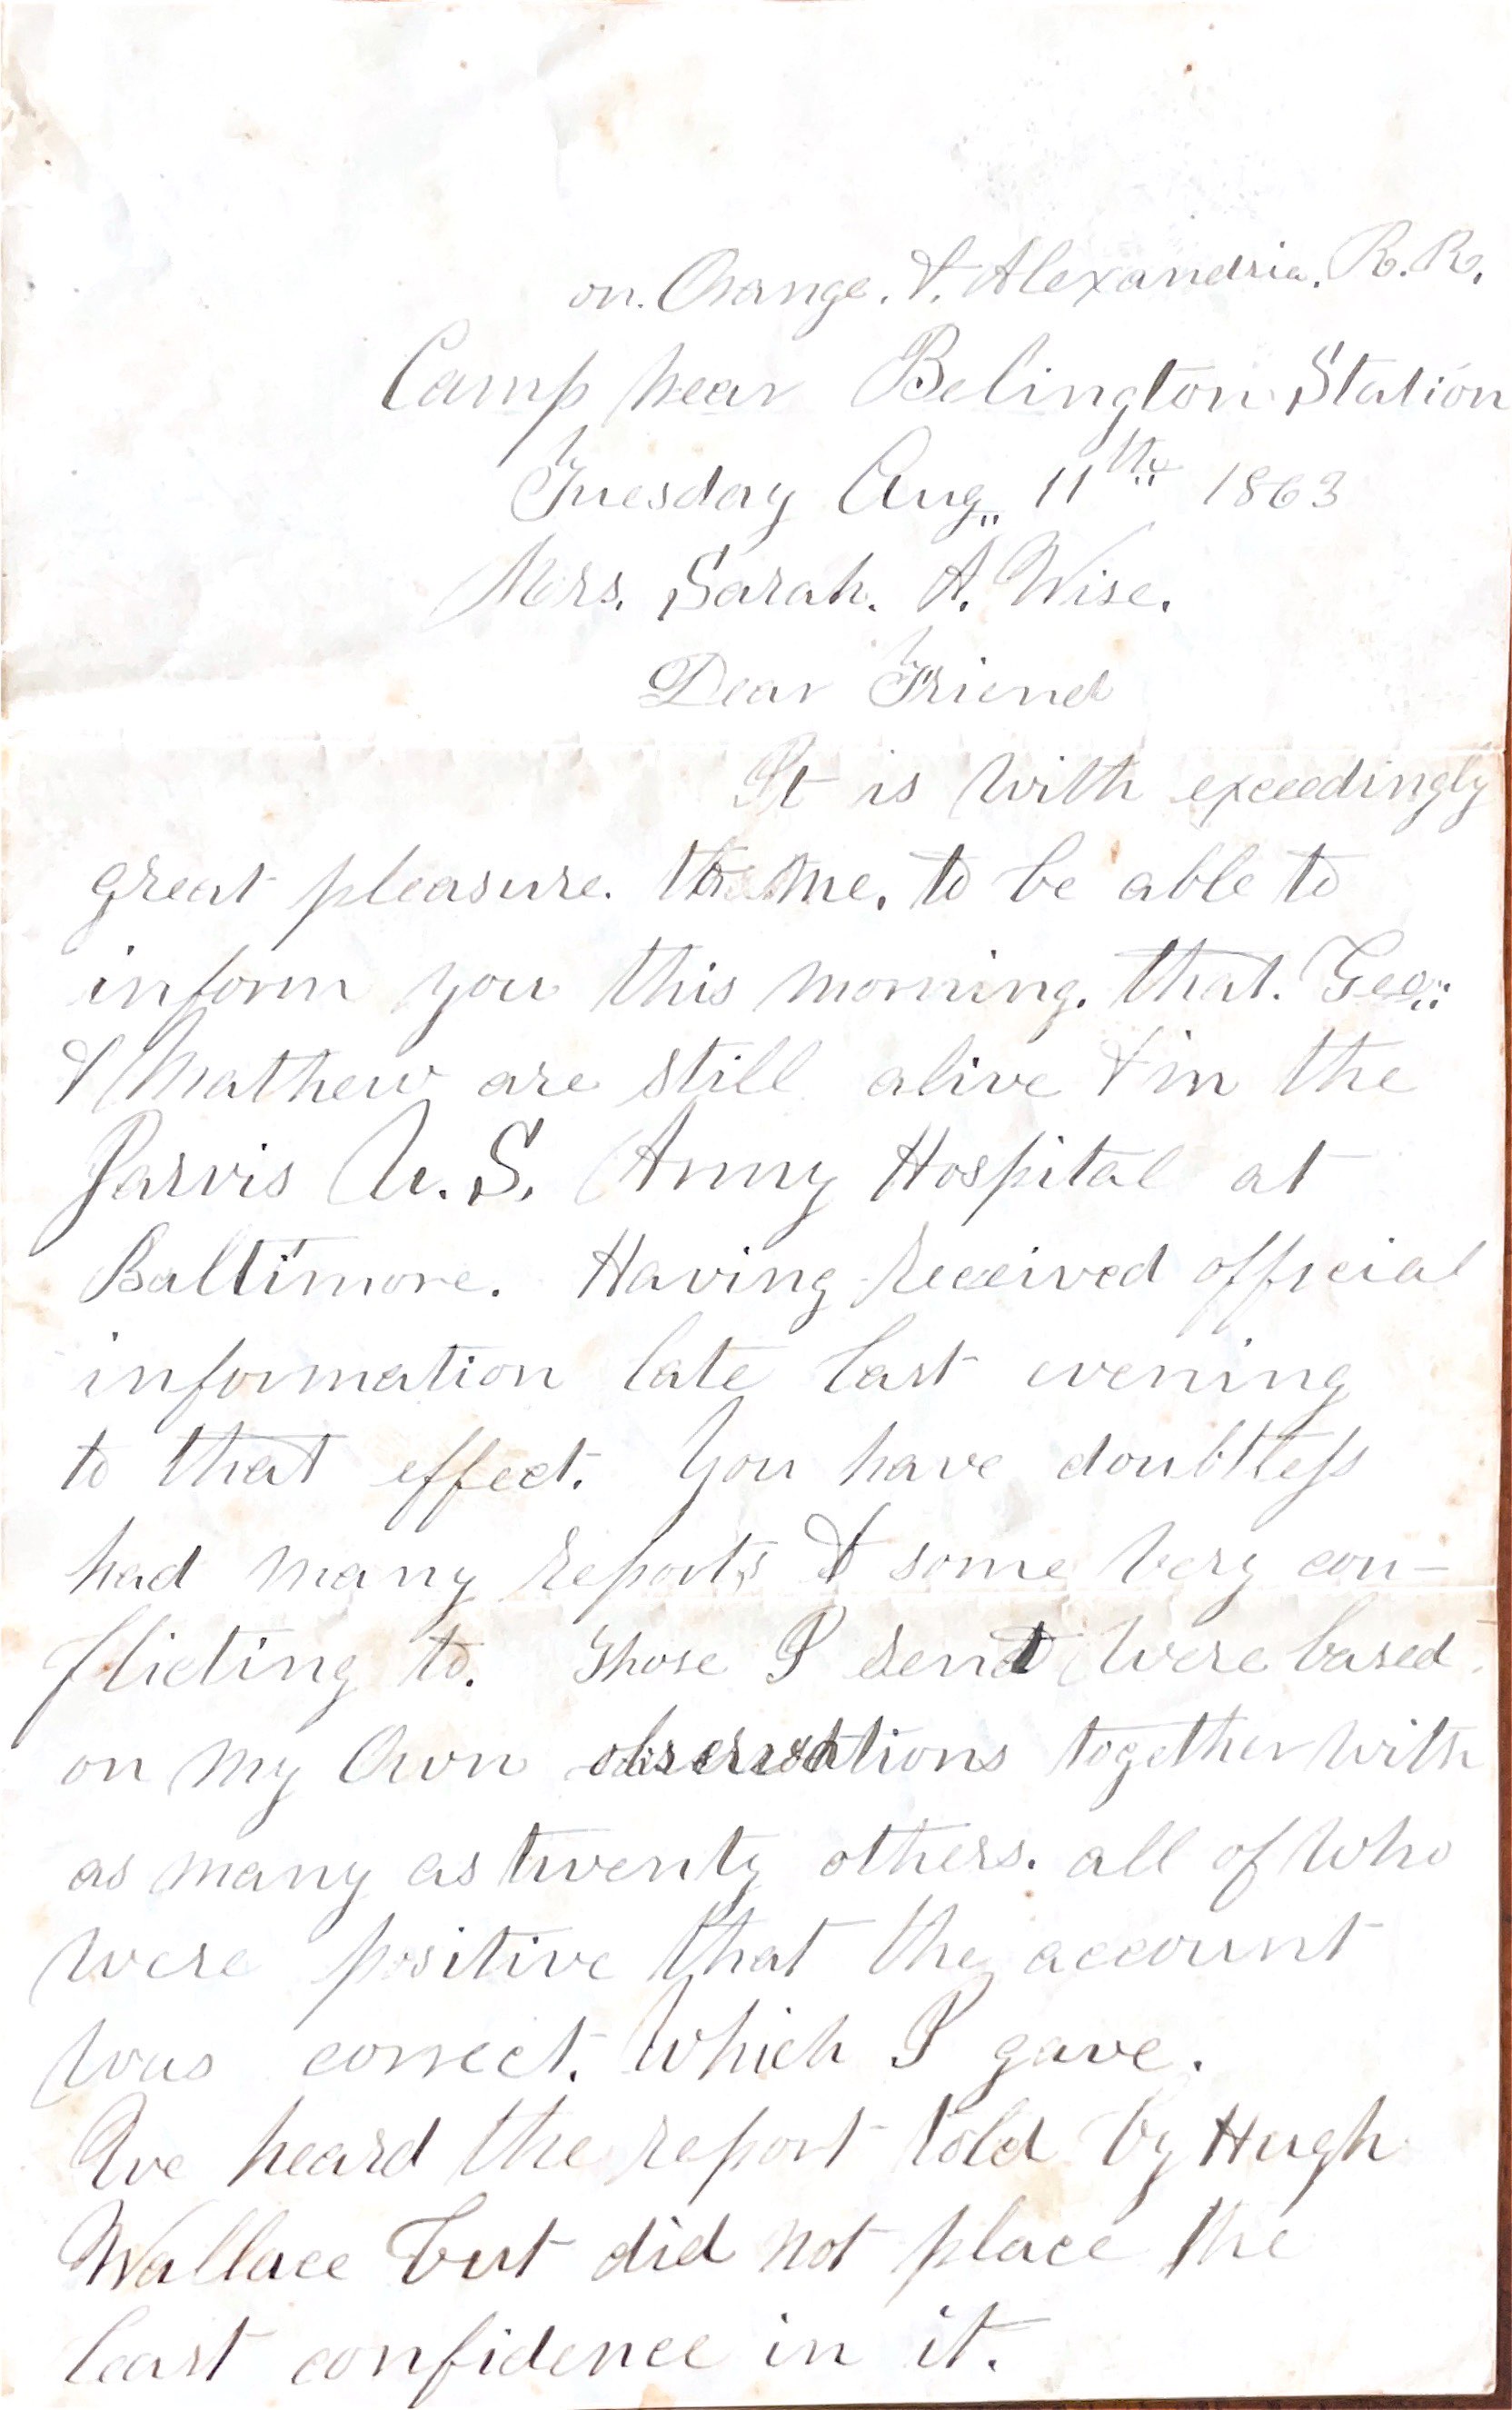 on. Orange. & Alexandria. R.R.
Camp near Belington Station
Tuesday Aug. 11th 1863
Mrs. Sarah. A. Wise.
Dear Friend
It is with exceedingly
great pleasure. to me. to be able to
inform you this morning. that. Geo.
& Mathew are still alive & in the
Jarvis U.S. Army Hospital at
Baltimore. Having received official
information late last evening
to that effect. You have doubtless
had many reports & some very con-
flicting to. Those I sent were based
on my own observations together with
as many as twenty others. all of who
were positive that the account
was correct. which I gave.
Ive heard the report told by Hugh
Wallace but did not place the
least confidence in it.